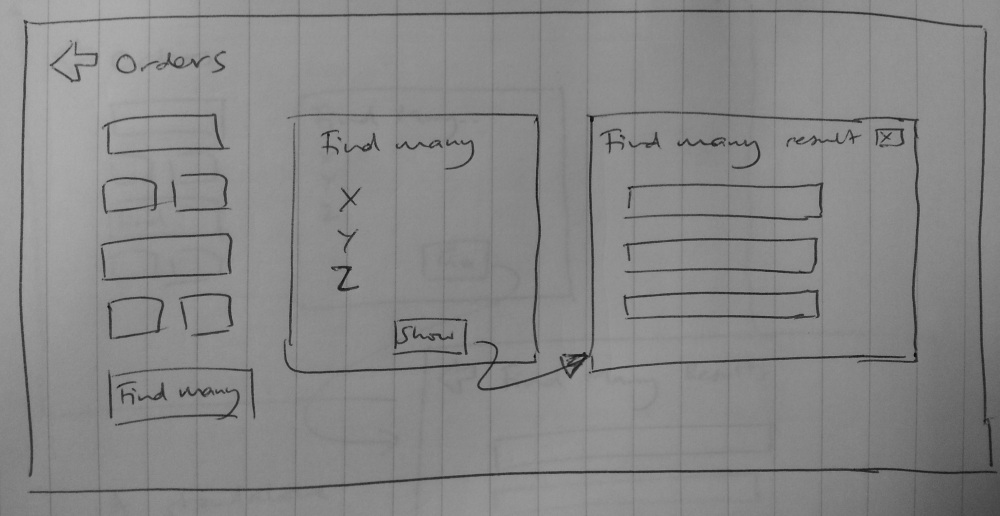 Orders
Find many
Find many
X
Y
Z
Show
Find many result X